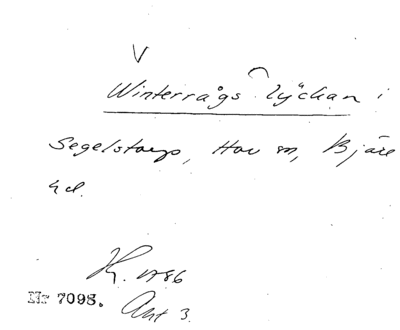 V
Winterrågs lyckan i
Segelstorp, Hov sn, Bjäre
hd.
K. 1786
Nr 7098. Akt 3.